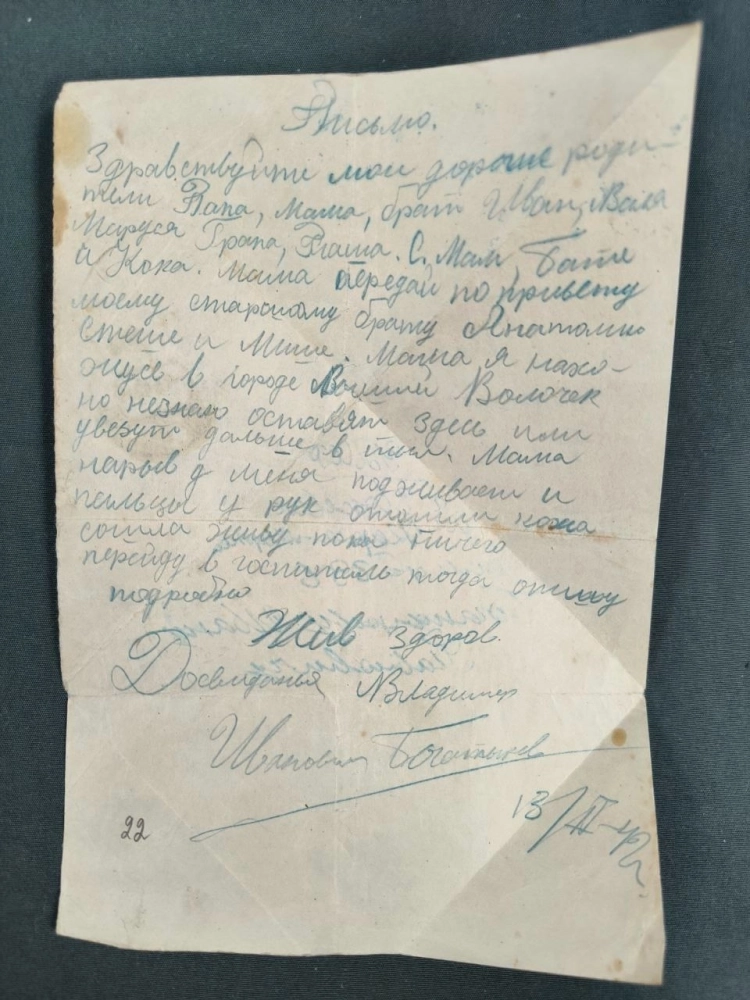 Письмо.
Здравствуйте мои дорогие роди-
тели Папа, Мама, брат Иван, Вала
Маруся Грапа, Паша. С. Мам, Батя
и Кока. Мама передай по привету
моему старшому брату Анатолию
Стеше и Мише. Мама я нахо-
жусь в городе Вышни Волочек
но незнаю оставят здесь или
увезут дальше в тыл. Мама
нарыв у меня поджывает и
пальцы у рук отошли кожа
сошла живу пока ничего
перейду в госпиталь тогда опишу
подробно
Жив Здоров.
Досвиданья Владимир
Иванович
13/II-42г.
22